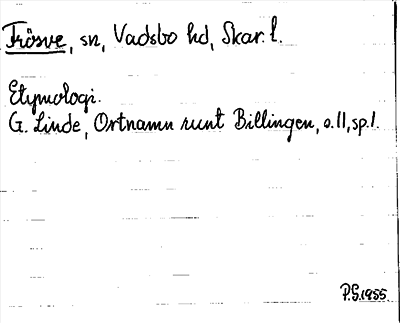 Frösve, sn, Vadsbo hd, Skar. l.
Etymologi.
G. Linde, Ortnamn runt Billingen, s. 11, sp. 1.
P.G. 1955